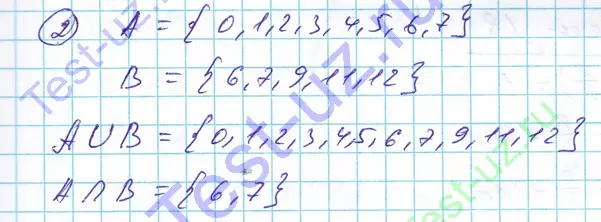 ② A = {0,1,2,3,4,5,6,7}
B = {6,7,9,11,12}
A∪B = {0,1,2,3,4,5,6,7,9,11,12}
A∩B = {6,7}
Test-uz.ru
Test-uz.ru
Test-uz.ru